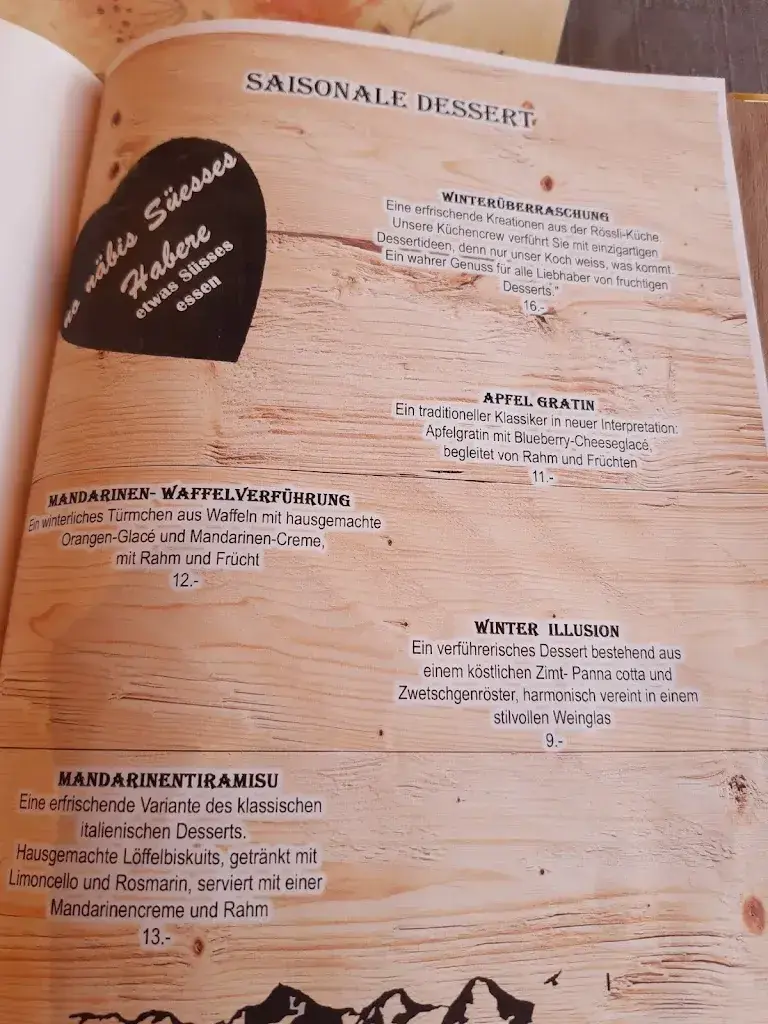 SAISONALE DESSERT
no näbis Süesses
Habere
etwas Süsses
essen
WINTERÜBERRASCHUNG
Eine erfrischende Kreationen aus der Rössli-Küche.
Unsere Küchencrew verführt Sie mit einzigartigen
Dessertideen, denn nur unser Koch weiss, was kommt.
Ein wahrer Genuss für alle Liebhaber von fruchtigen
Desserts."
16.-
APFEL GRATIN
Ein traditioneller Klassiker in neuer Interpretation:
Apfelgratin mit Blueberry-Cheeseglacé,
begleitet von Rahm und Früchten
11.-
MANDARINEN- WAFFELVERFÜHRUNG
Ein winterliches Türmchen aus Waffeln mit hausgemachte
Orangen-Glacé und Mandarinen-Creme,
mit Rahm und Frücht
12.-
WINTER ILLUSION
Ein verführerisches Dessert bestehend aus
einem köstlichen Zimt- Panna cotta und
Zwetschgenröster, harmonisch vereint in einem
stilvollen Weinglas
9.-
MANDARINENTIRAMISU
Eine erfrischende Variante des klassischen
italienischen Desserts.
Hausgemachte Löffelbiskuits, getränkt mit
Limoncello und Rosmarin, serviert mit einer
Mandarinencreme und Rahm
13.-